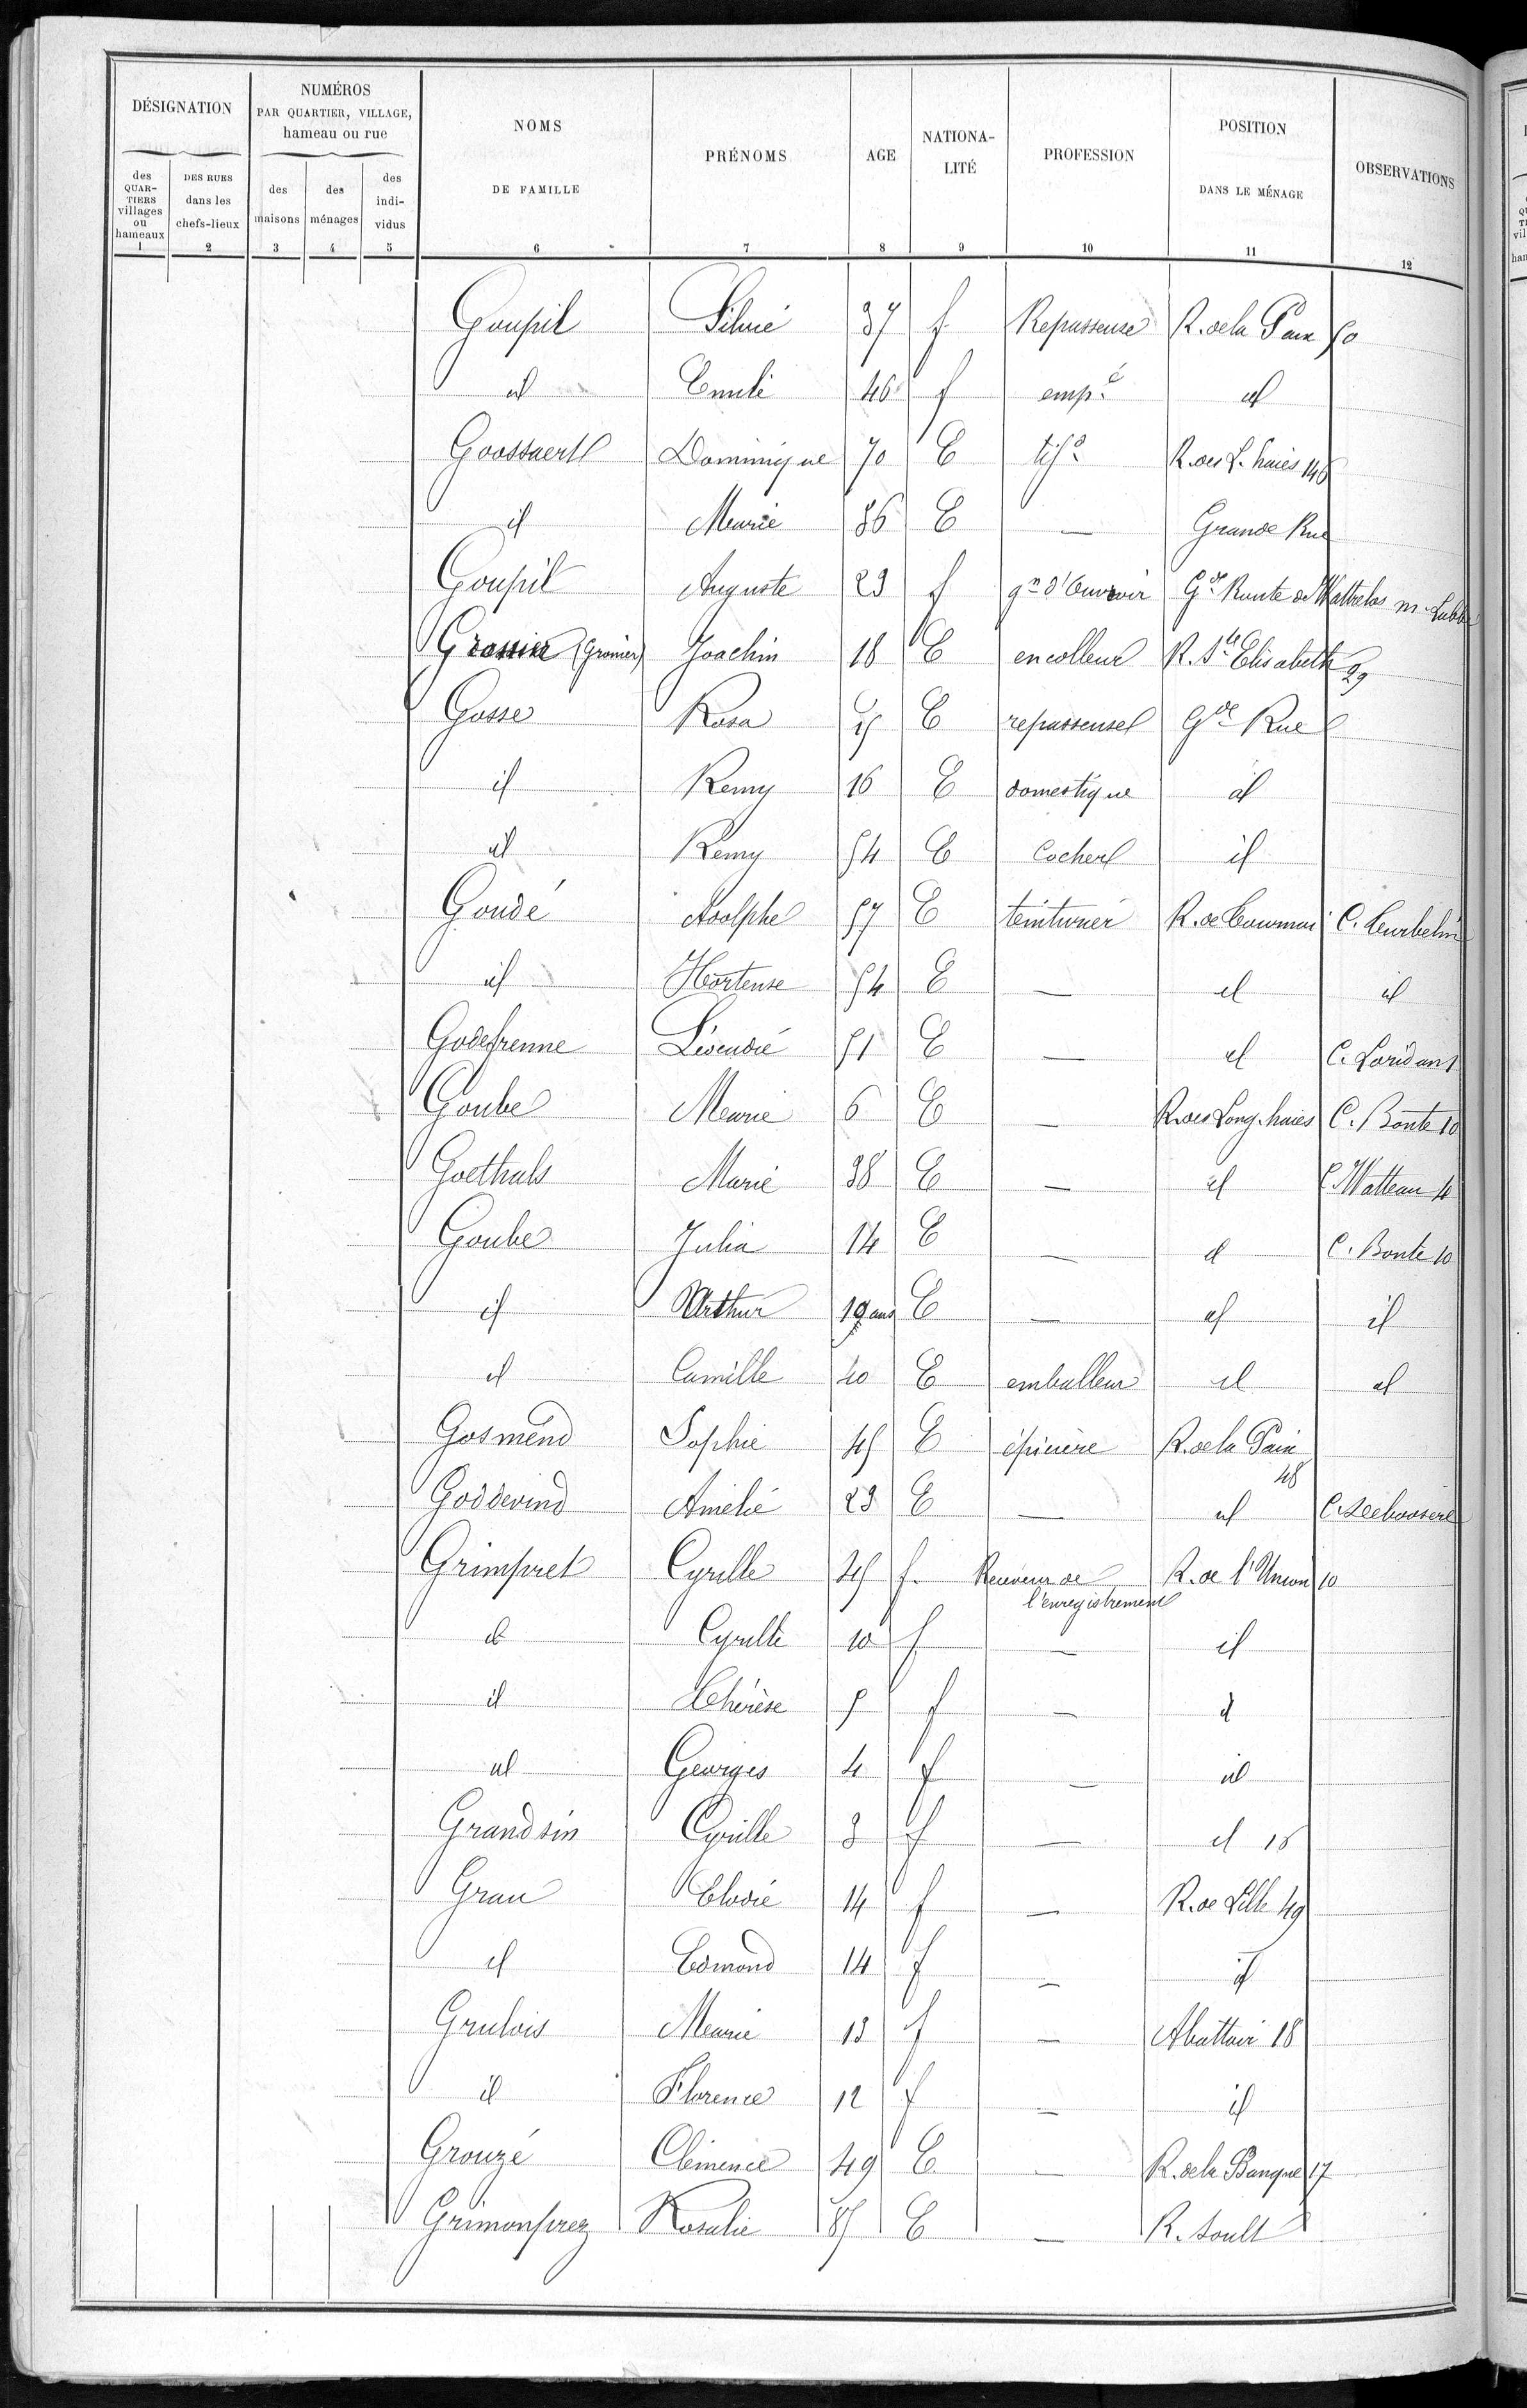 DÉSIGNATION
NUMÉROS
PAR QUARTIER, VILLAGE,
hameau ou rue
NOMS
DE FAMILLE
PRÉNOMS
AGE
NATIONA-
LITÉ
PROFESSION
POSITION
DANS LE MÉNAGE
OBSERVATIONS
des
QUAR-
TIERS
villages
ou
hameaux
DES RUES
dans les
chefs-lieux
des
maisons
des
ménages
des
indi-
vidus
1 2 3 4 5 6 7 8 9 10 11 12
Goupil Silvie 37 f Repasseuse R. de la Paix 50
id Emile 46 f emp.é id
Goossaert Dominique 70 E tis.d R. des L. haies 146
id Marie 86 E — Grande Rue
Goupil Auguste 29 f gn d'Ouvroir Gde Route de Wattrelos m.
Grossier (Gronier) Joachin 18 E encolleur R. Ste Elisabeth 29
Gosse Rosa E repasseuse Gde Rue
id Remy 16 E domestique id
id Remy 54 E Cocher id
Goudé Adolphe 57 E teinturier R. de C.
id Hortense 54 E — id id
Godefrenne 51 E — id C. Loridan 1
Goube Marie 6 E — R. des Long. haies C. Bonte 10
Goethals Marie 38 E — id C. Watteau 4
Goube Julia 14 E — id C. Bonte 10
id Arthur 19 ans E — id id
id Camille 40 E emballeur id id
Gosmend Sophie 45 E épicière R. de la Paix
48
Godderind Amélie 29 E — id C.
Grimpret Cyrille 45 f. Receveur de R. de l'Union 10
l'enregistrement
id Cyrille 10 f — id
id Thérèse 5 f — id
id Georges 4 f — id
Grandsin Cyrille 3 f — id 18
Grau Elodie 14 f — R. de Lille 49
id Edmond 14 f — id
Grulois Marie 13 f — Abattoir 18
id Florence 12 f — id
Grouzé Clémence 49 E — R. de la Banque 17
Grimonprez Rosalie 85 E — R. Soult